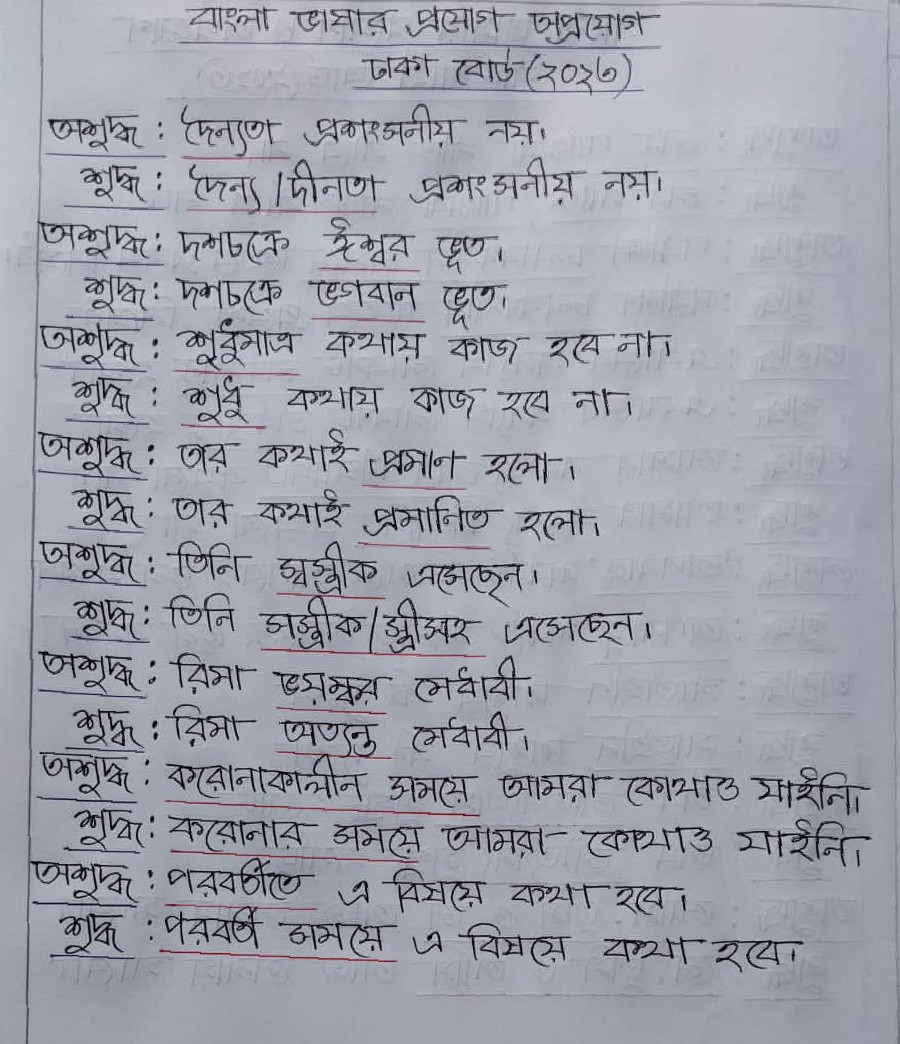 বাংলা ভাষার প্রয়োগ অপ্রয়োগ
ঢাকা বোর্ড (২০২৩)
অশুদ্ধ : দৈন্যতা প্রশংসনীয় নয়।
শুদ্ধ : দৈন্য / দীনতা প্রশংসনীয় নয়।
অশুদ্ধ : দশচক্রে ঈশ্বর ভূত।
শুদ্ধ : দশচক্রে ভগবান ভূত।
অশুদ্ধ : শুধুমাত্র কথায় কাজ হবে না।
শুদ্ধ : শুধু কথায় কাজ হবে না।
অশুদ্ধ : তার কথাই প্রমান হলো।
শুদ্ধ : তার কথাই প্রমানিত হলো।
অশুদ্ধ : তিনি স্বস্ত্রীক এসেছেন।
শুদ্ধ : তিনি সস্ত্রীক / স্ত্রীসহ এসেছেন।
অশুদ্ধ : রিমা ভয়ঙ্কর মেধাবী।
শুদ্ধ : রিমা অত্যন্ত মেধাবী।
অশুদ্ধ : করোনাকালীন সময়ে আমরা কোথাও যাইনি।
শুদ্ধ : করোনার সময়ে আমরা কোথাও যাইনি।
অশুদ্ধ : পরবর্তীতে এ বিষয়ে কথা হবে।
শুদ্ধ : পরবর্তী সময়ে এ বিষয়ে কথা হবে।